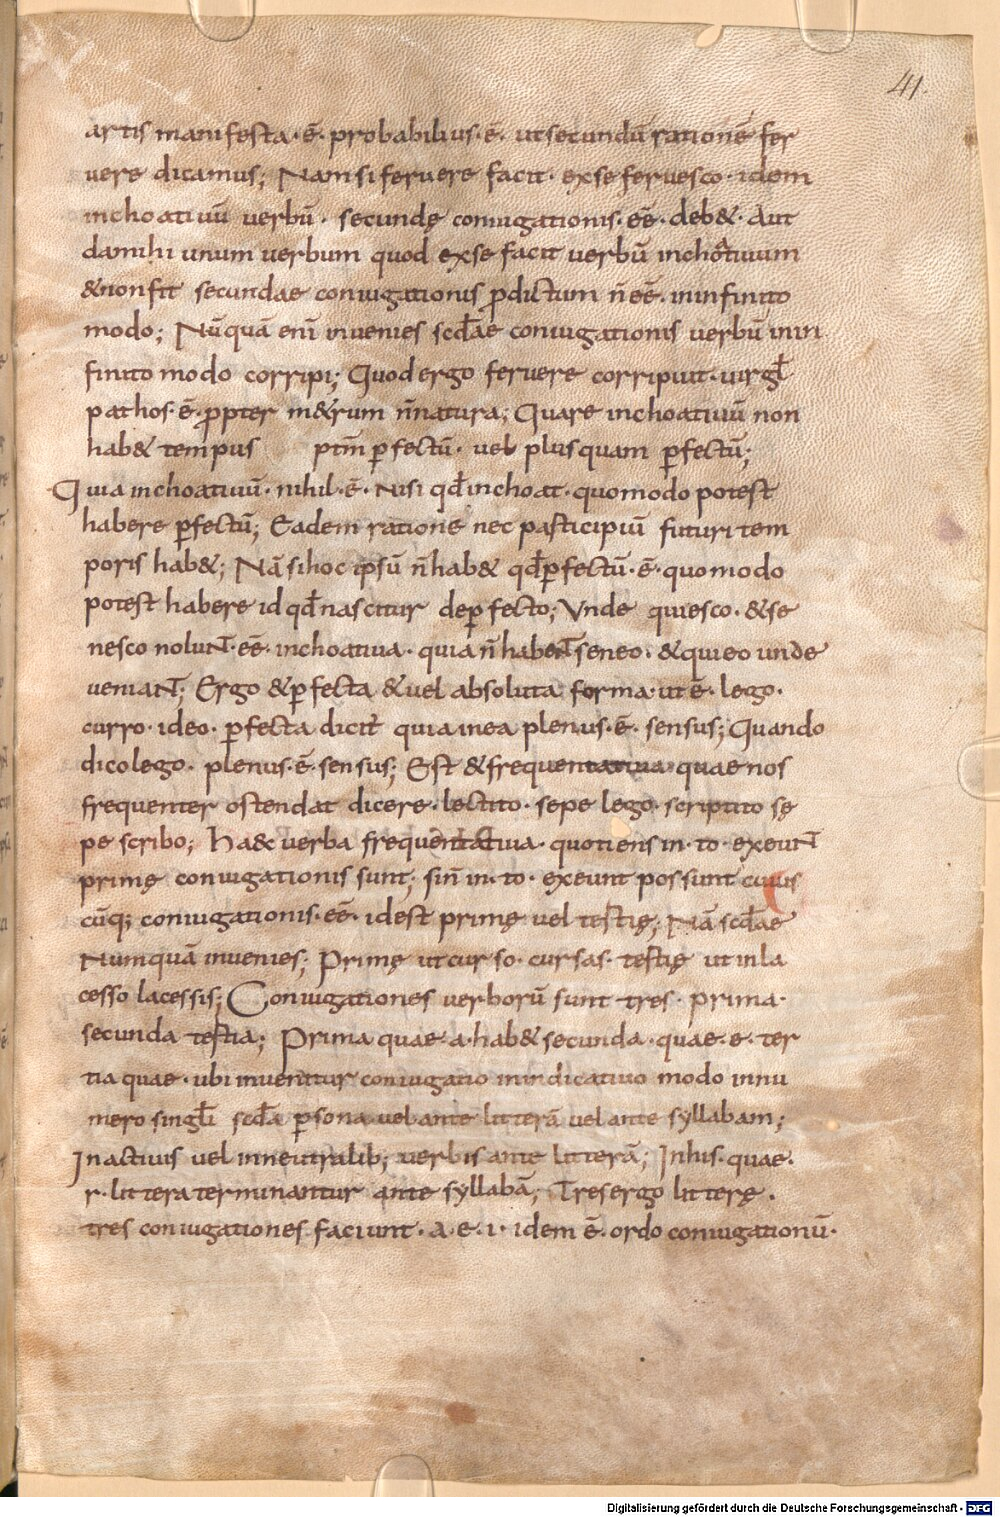 41.
artis manifesta·ē· probabilius·ē· ut secundū rationē fer
vere dicamus; Nam si fervere facit· ex se fervesco· idem
inchoativū verbū· secundę coniugationis· eē· deb&· Aut
da mihi unum verbum quod ex se facit verbū inchoativum
& non sit secundae coniugationis p̄dictum n̄ eē· in infinito
modo; Nūquā eni invenies scdāe coniugationis verbū in in
finito modo corripi; Quod ergo fervere corripuit· virgl̄
pathos·ē· ꝓpter m&rum n̄ natura; Quare inchoativū non
hab& tempus ptm̄ ꝑfectū· vel plusquam ꝑfectū;
Quia inchoativū· nihil·ē· Nisi qđ inchoat· quomodo potest
habere ꝑfectū; Eadem ratione nec participiū futuri tem
poris hab&; Nā si hoc ipsū n̄ hab& qđ ꝑfectū·ē· quomodo
potest habere id qđ nascitur de ꝑfecto; Unde quiesco· & se
nesco nolunt· eē· inchoativa· quia n̄ habent seneo· & quieo unde
veniant; Ergo & ꝑfecta & vel absoluta forma· ut ē· lego·
curro· ideo· ꝑfecta dicit̄ quia in ea plenus·ē· sensus; Quando
dico lego· plenus·ē· sensus; Est & frequentativa· quae nos
frequenter ostendat dicere· lectito· sepe lego· scriptito sę
pe scribo; Haec verba frequentativa· quotiens in· to· exeunt
primę coniugationis sunt; sin̄ in· to· exeunt possunt cuius
cūq; coniugationis· eē· id est primę vel tertię; Nā scdāe
Numquā invenies; Primę ut curso· cursas· tertię ut in la
cesso lacessis; Coniugationes verborū sunt tres· prima·
secunda tertia; Prima quae· a· hab& secunda· quae· e· ter
tia quae· ubi invenitur coniugatio in indicativo modo in nu
mero singl̄i scdā ꝑsona vel ante litterā vel ante syllabam;
In activis vel in neutralib; verbis ante litterā; In his· quae·
r· littera terminantur ante syllabā; Tres ergo litterę·
tres coniugationes faciunt· a· e· i· idem ē· ordo coniugationū·
Digitalisierung gefördert durch die Deutsche Forschungsgemeinschaft · DFG